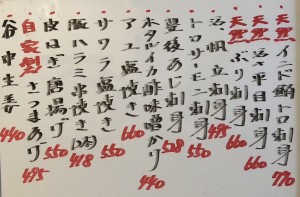 天然 インド鮪トロ刺身 770
天然 活〆平目刺身 660
天然 ぶり刺身 660
活〆帆立刺身 495
トロサーモン刺身 550
豊後あじ刺身 528
ホタルイカ酢味噌がけ 440
アユ塩焼き 660
サワラ塩焼き 550
豚ハラミ串焼き(2本) 418
皮はぎ唐揚げ 550
自家製 さつまあげ 495
谷中生姜 440